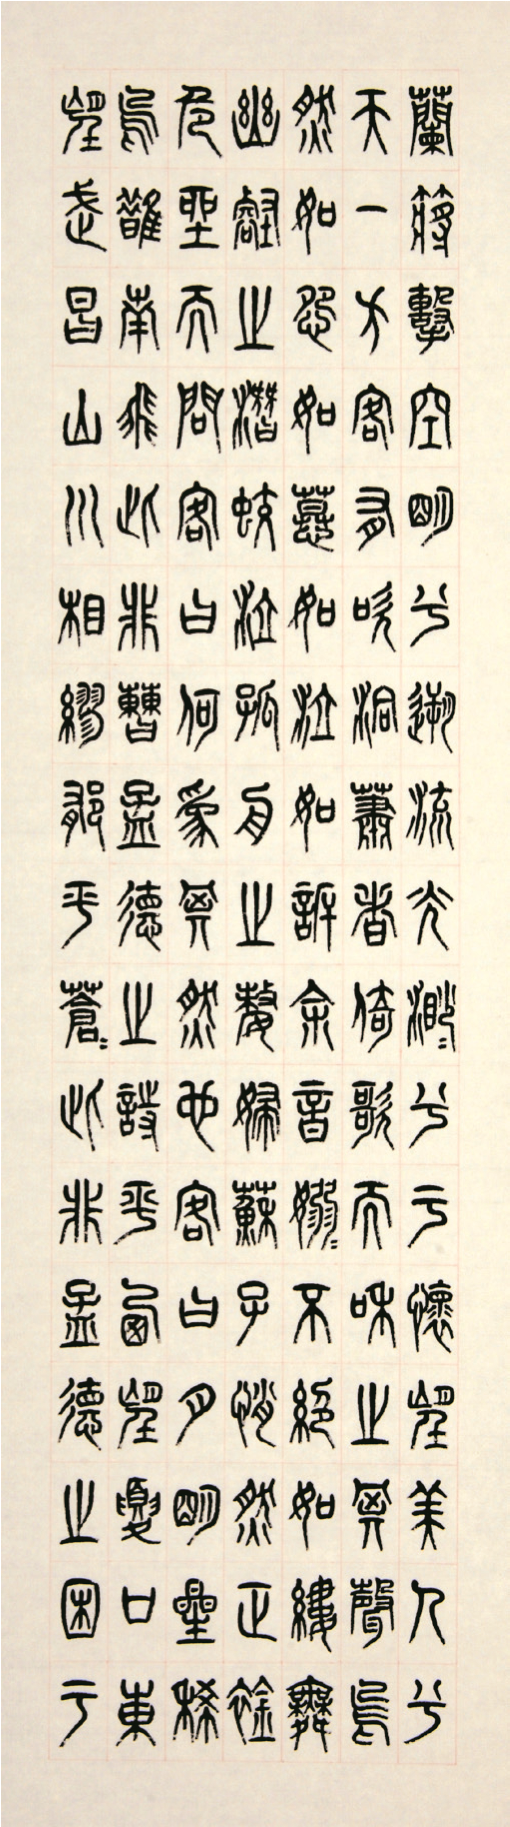 蘭槳擊空明兮遡流光渺〻兮于懷望美人兮
天一方客有吹洞簫者倚歌而和之其聲烏
然如怨如慕如泣如訴余音嫋〻不絕如縷舞
幽壑之潛蛟泣孤舟之嫠婦蘇子愀然正襟
危坐而問客曰何為其然也客曰月明星稀
烏鵲南飛此非曹孟德之詩乎西望夏口東
望武昌山川相繆郁乎蒼〻此非孟德之困于